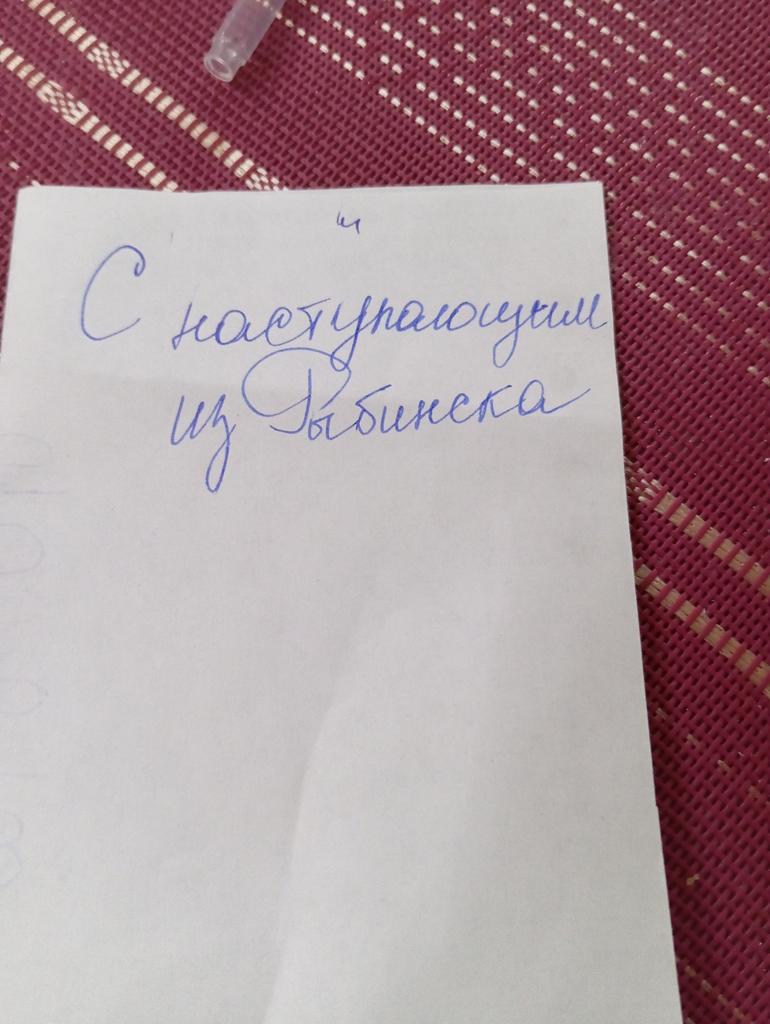 С наступающим
из Рыбинска